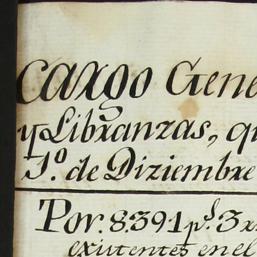 Cargo Gene
y Libranzas, qu
1.º de Diziembre
Por. 8.391 p.s 3 r
existentes en el